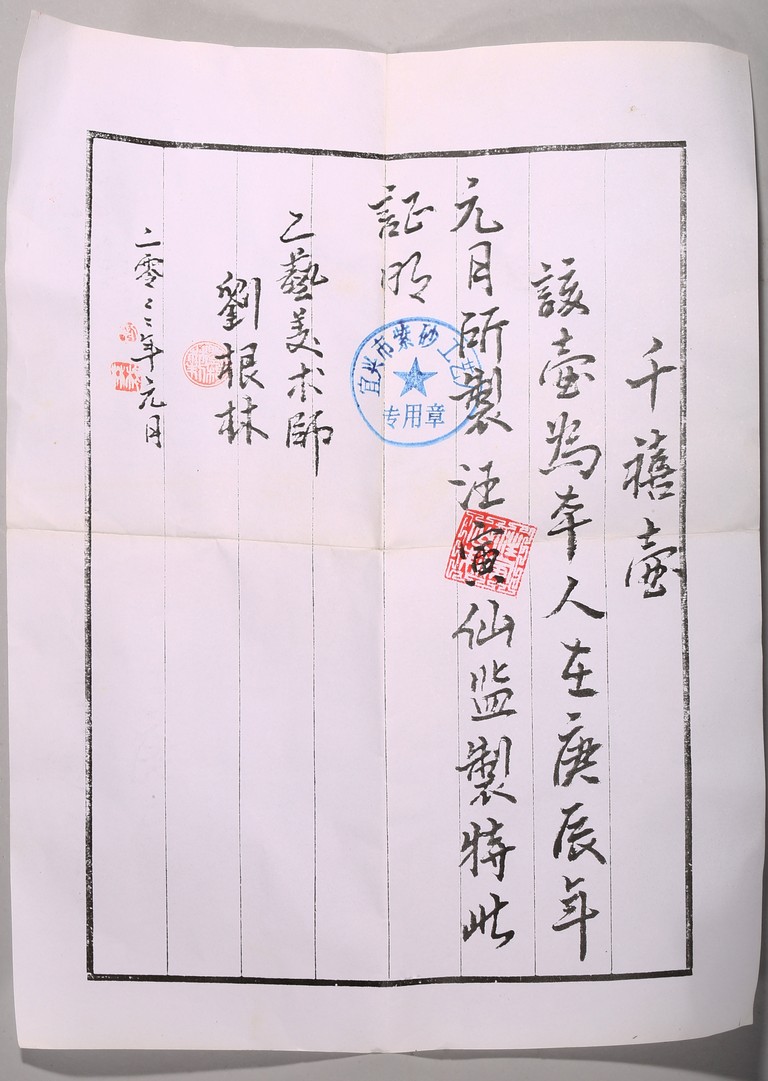 千禧壺
該壺為本人在庚辰年
元月所製汪寅仙监製特此
証明
工藝美术師
劉根林
二零〇〇年元月
宜兴市紫砂工艺
专用章